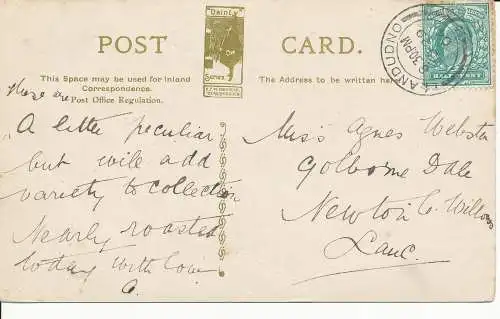 POST
"Dainty"
Series
CARD.
This Space may be used for Inland
Correspondence.
Post Office Regulation.
The Address to be written here.
LLANDUDNO
30 PM
HALFPENNY
These are
A little peculiar
but will add
variety to collection
Nearly roasted
today with love
Miss Agnes Webster
Golborne Dale
Newton Le Willows
Lanc.